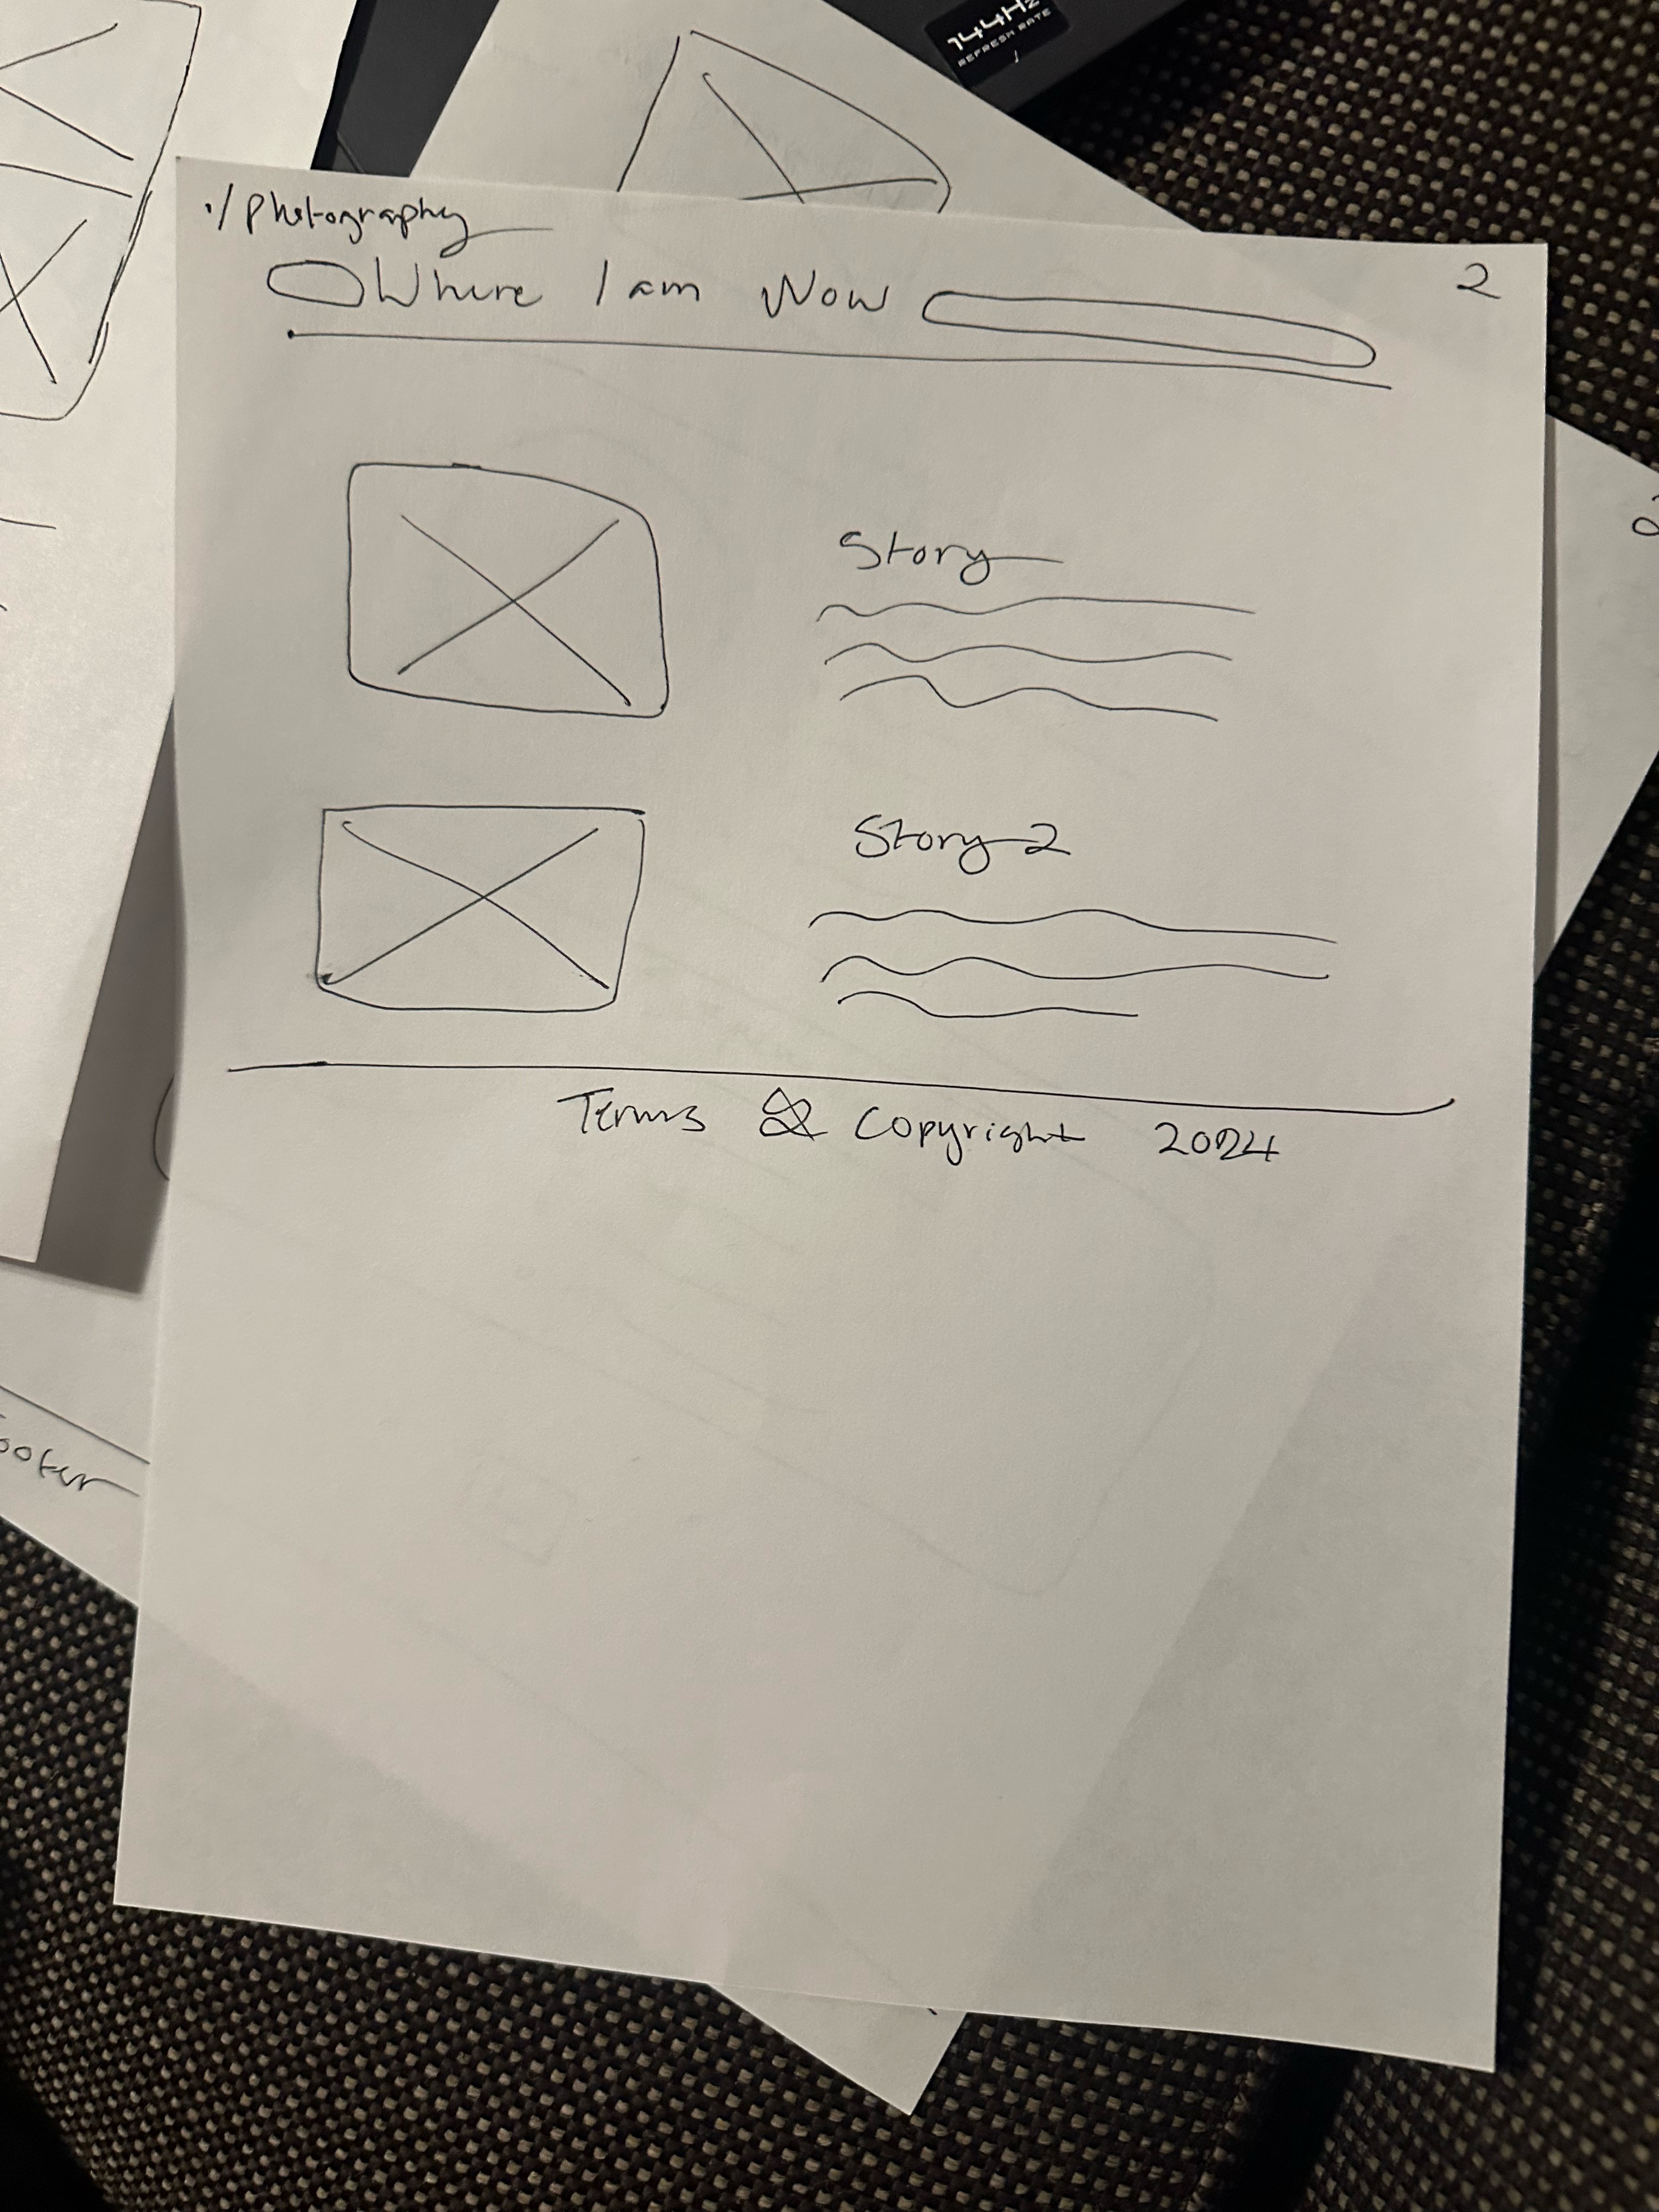 144Hz
REFRESH RATE
./photography
2
Where I am Now
Story
Story 2
Terms & Copyright 2024